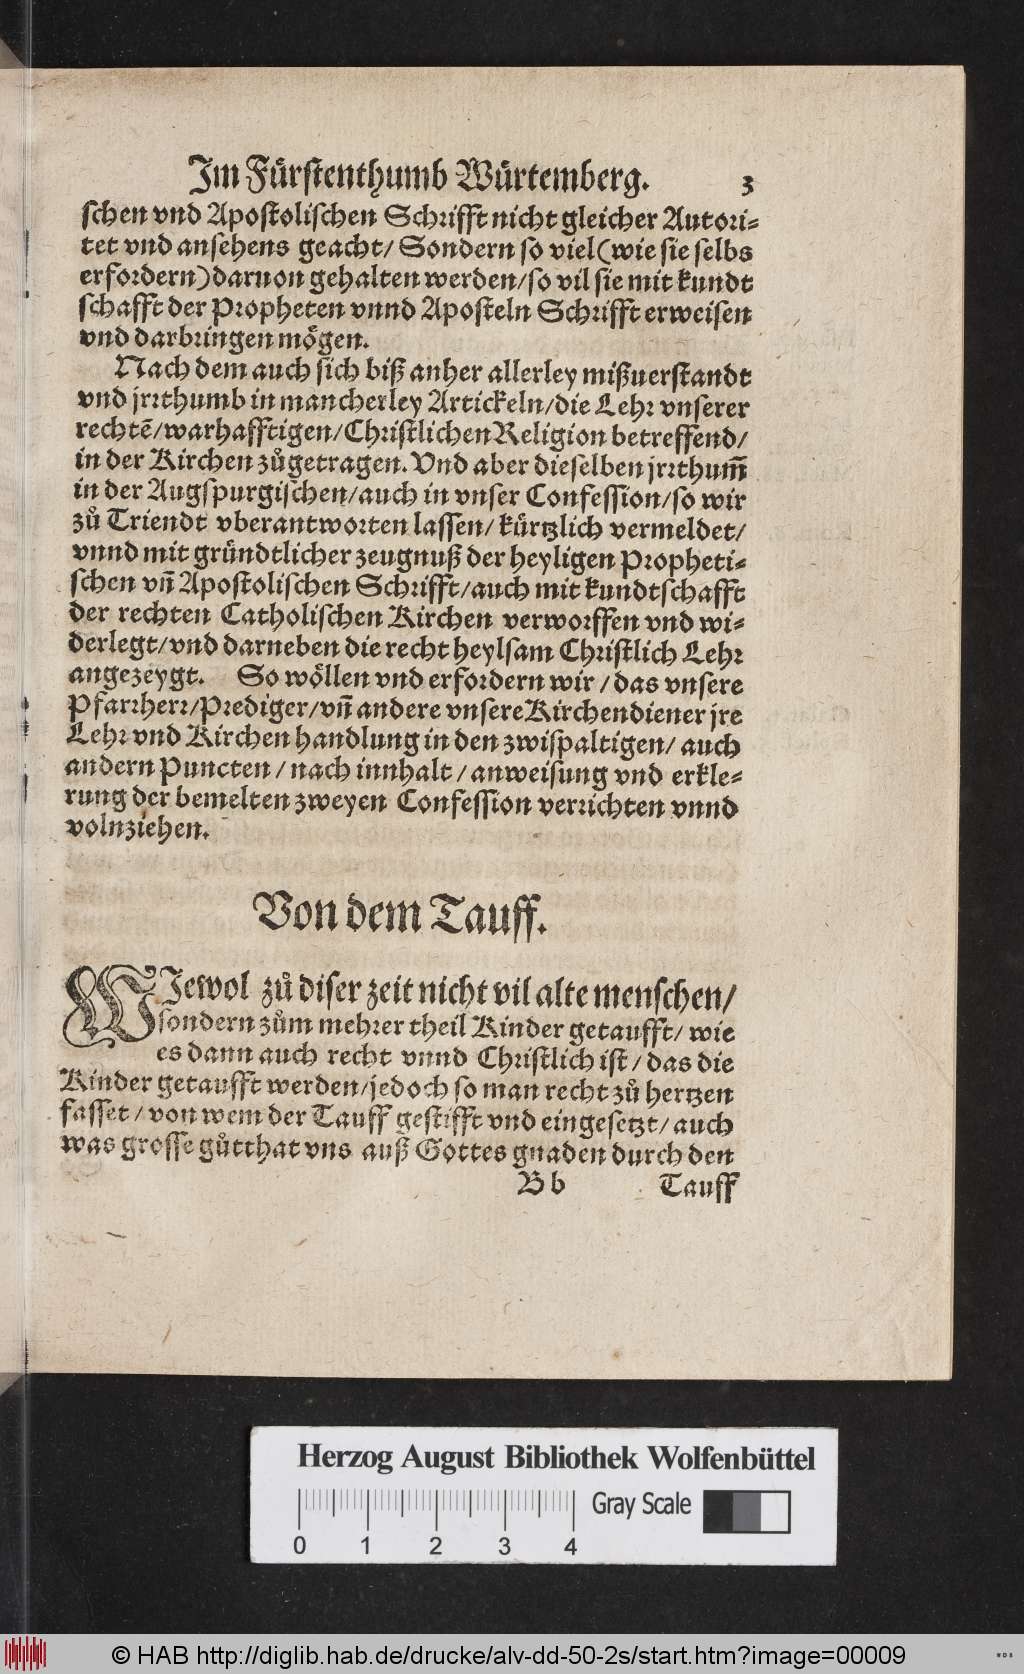 Im Fürstenthumb Würtemberg. 3
schen vnd Apostolischen Schrifft nicht gleicher Autori-
tet vnd ansehens geacht/ Sondern so viel (wie sie selbs
erfordern) daruon gehalten werden/ so vil sie mit kundt
schafft der Propheten vnnd Aposteln Schrifft erweisen
vnd darbringen mögen.
Nach dem auch sich biß anher allerley mißuerstandt
vnd jrrthumb in mancherley Artickeln/ die Lehr vnserer
rechtē/ warhafftigen/ Christlichen Religion betreffend/
in der Kirchen zůgetragen. Vnd aber dieselben jrrthum̃
in der Augspurgischen/ auch in vnser Confession/ so wir
zů Triendt vberantworten lassen/ kürtzlich vermeldet/
vnnd mit gründtlicher zeugnuß der heyligen Propheti-
schen vñ Apostolischen Schrifft/ auch mit kundtschafft
der rechten Catholischen Kirchen verworffen vnd wi-
derlegt/ vnd darneben die recht heylsam Christlich Lehr
angezeygt. So wöllen vnd erfordern wir/ das vnsere
Pfarrherr/ Prediger/ vñ andere vnsere Kirchendiener jre
Lehr vnd Kirchen handlung in den zwispaltigen/ auch
andern Puncten/ nach innhalt/ anweisung vnd erkle-
rung der bemelten zweyen Confession verrichten vnnd
volnziehen.
Von dem Tauff.
WJewol zů diser zeit nicht vil alte menschen/
sondern zům mehrer theil Kinder getaufft/ wie
es dann auch recht vnnd Christlich ist/ das die
Kinder getaufft werden/ jedoch so man recht zů hertzen
fasset/ von wem der Tauff gestifft vnd eingesetzt/ auch
was grosse gůtthat vns auß Gottes gnaden durch den
B b Tauff
Herzog August Bibliothek Wolfenbüttel
Gray Scale
0 1 2 3 4
© HAB http://diglib.hab.de/drucke/alv-dd-50-2s/start.htm?image=00009